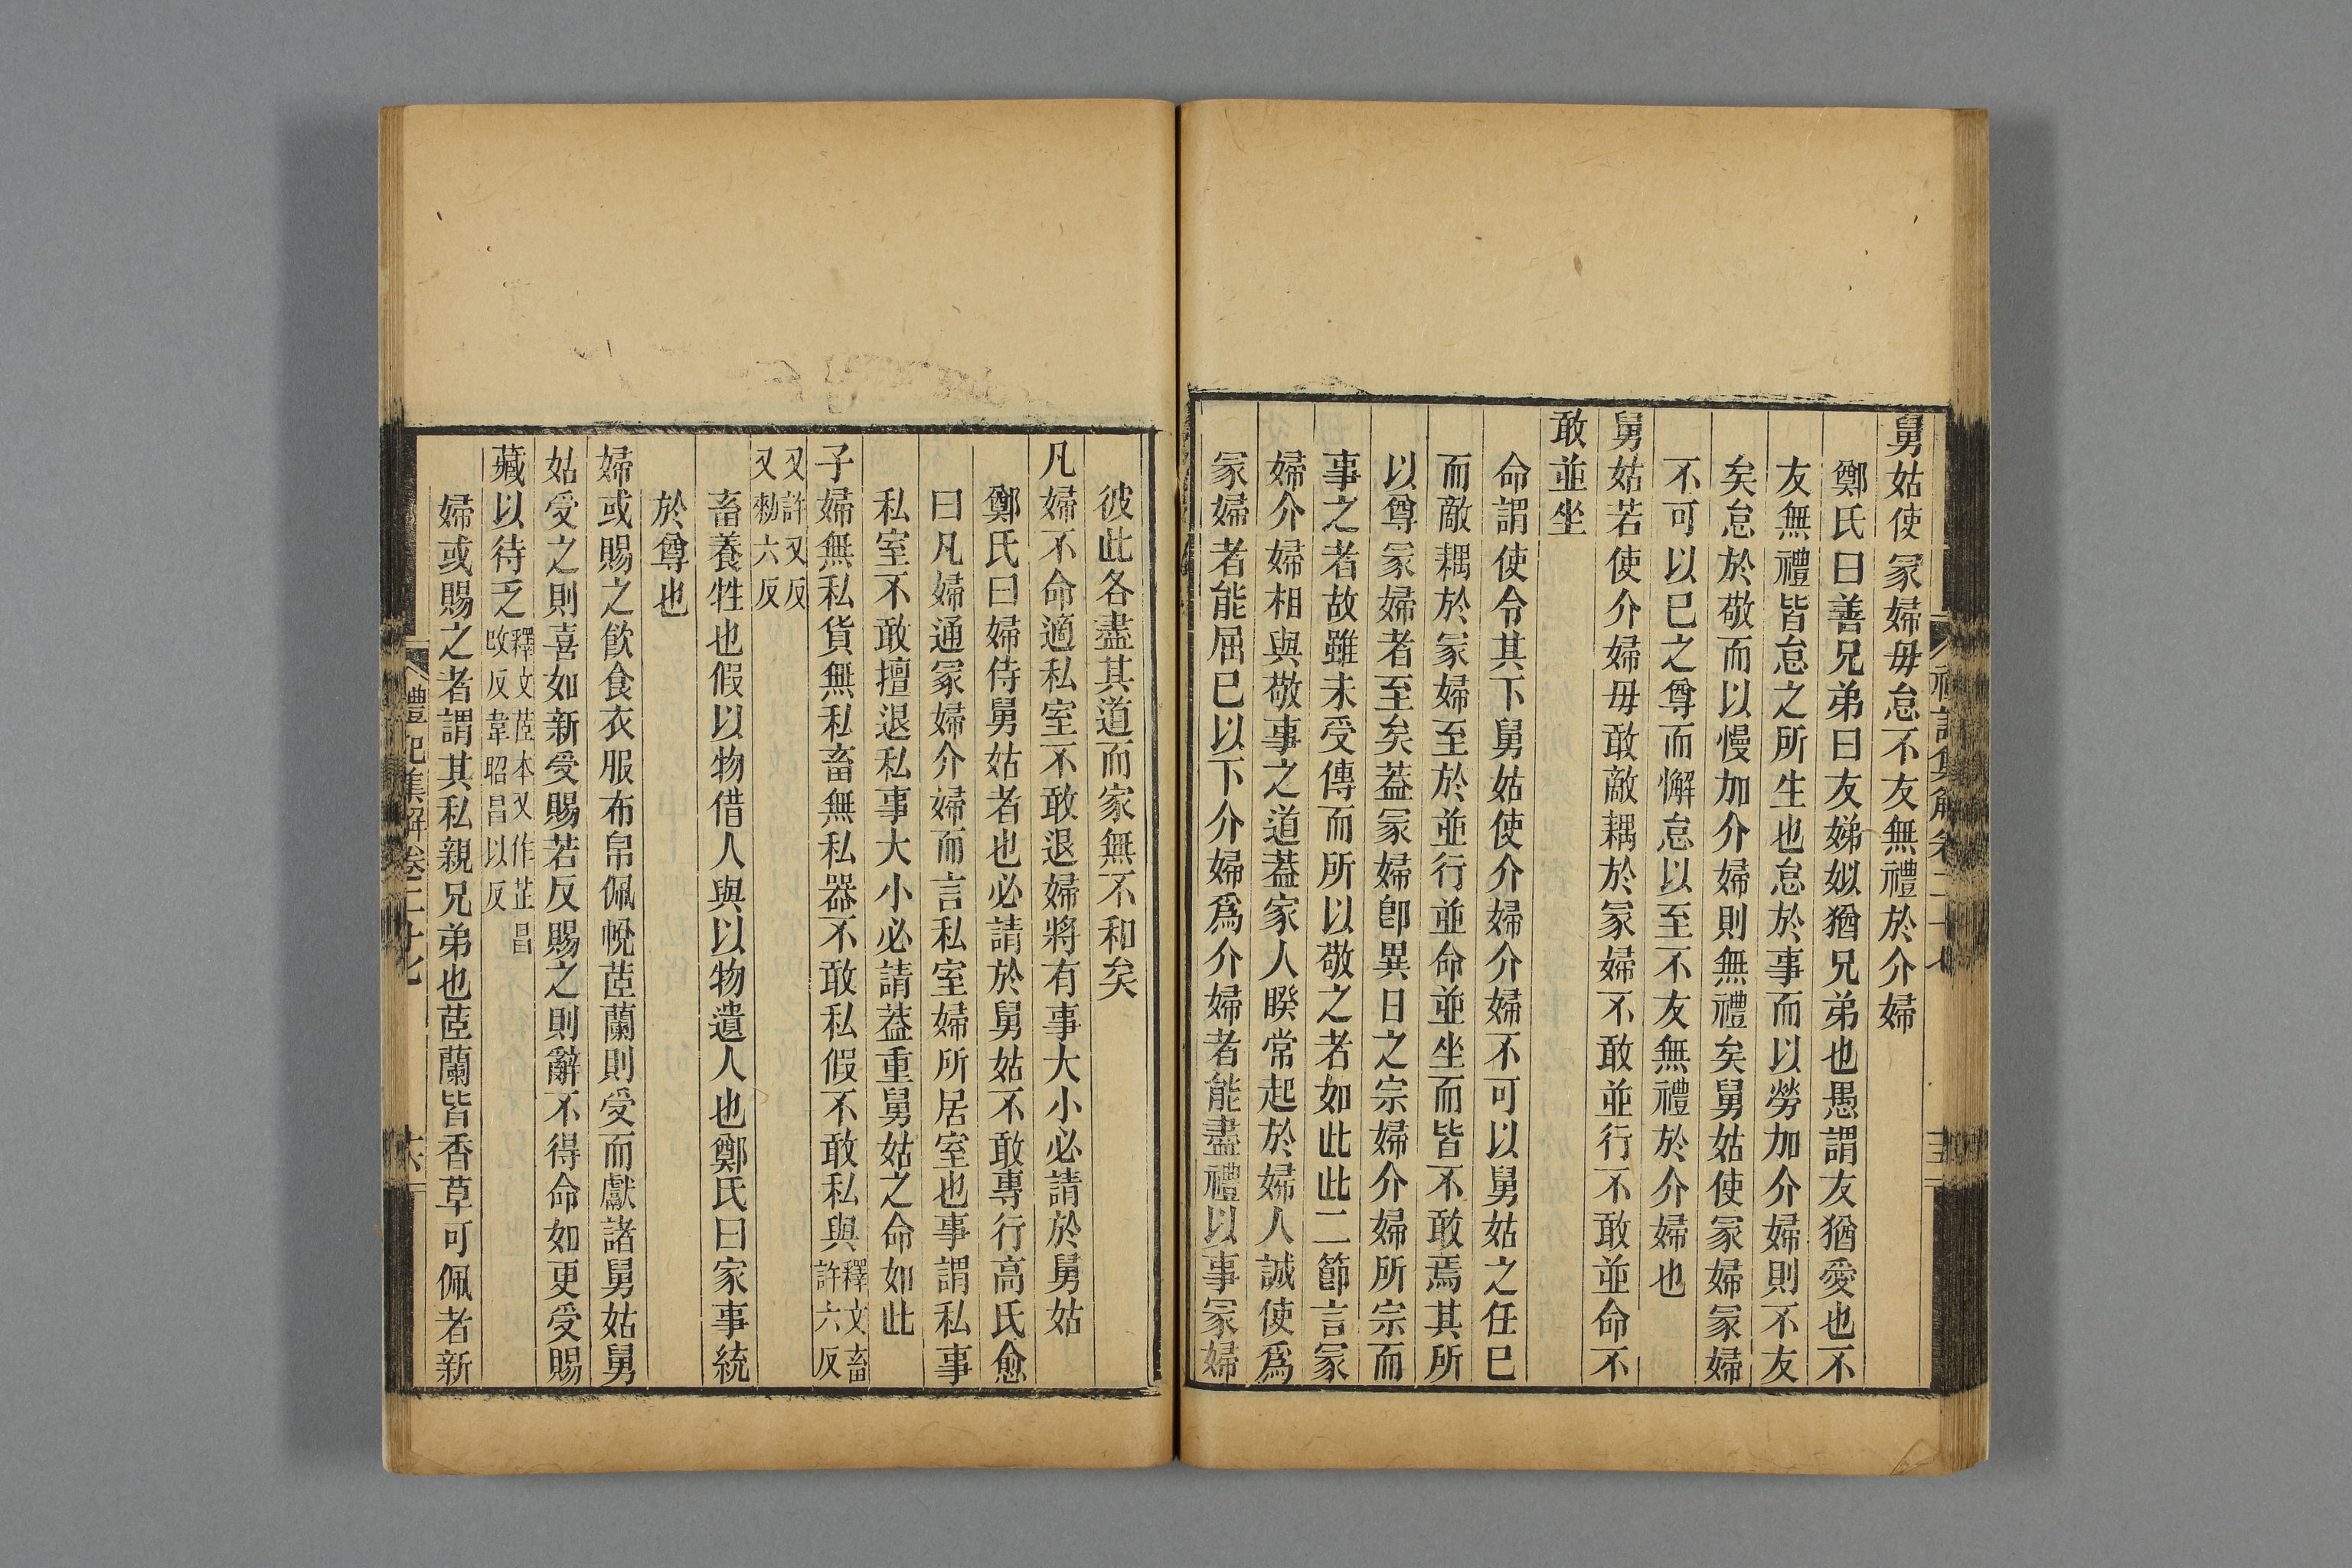 舅姑使冢婦毋怠不友無禮於介婦
鄭氏曰善兄弟曰友娣姒猶兄弟也愚謂友猶愛也不
友無禮皆怠之所生也怠於事而以勞加介婦則不友
矣怠於敬而以慢加介婦則無禮矣舅姑使冢婦冢婦
不可以已之尊而懈怠以至不友無禮於介婦也
舅姑若使介婦毋敢敵耦於冢婦不敢並行不敢並命不
敢並坐
命謂使令其下舅姑使介婦介婦不可以舅姑之任已
而敵耦於冢婦至於並行並命並坐而皆不敢焉其所
以尊冢婦者至矣葢冢婦卽異日之宗婦介婦所宗而
事之者故雖未受傳而所以敬之者如此此二節言冢
婦介婦相與敬事之道葢家人睽常起於婦人誠使爲
冢婦者能屈已以下介婦爲介婦者能盡禮以事冢婦
彼此各盡其道而家無不和矣
凡婦不命適私室不敢退婦將有事大小必請於舅姑
鄭氏曰婦侍舅姑者也必請於舅姑不敢專行高氏愈
曰凡婦通冢婦介婦而言私室婦所居室也事謂私事
私室不敢擅退私事大小必請葢重舅姑之命如此
子婦無私貨無私畜無私器不敢私假不敢私與釋文畜許六反
又許又反又勑六反
畜養牲也假以物借人與以物遺人也鄭氏曰家事統
於尊也
婦或賜之飮食衣服布帛佩帨茝蘭則受而獻諸舅姑舅
姑受之則喜如新受賜若反賜之則辭不得命如更受賜
藏以待乏釋文茝本又作芷昌改反韋昭昌以反
婦或賜之者謂其私親兄弟也茝蘭皆香草可佩者新
禮記集解卷二十七